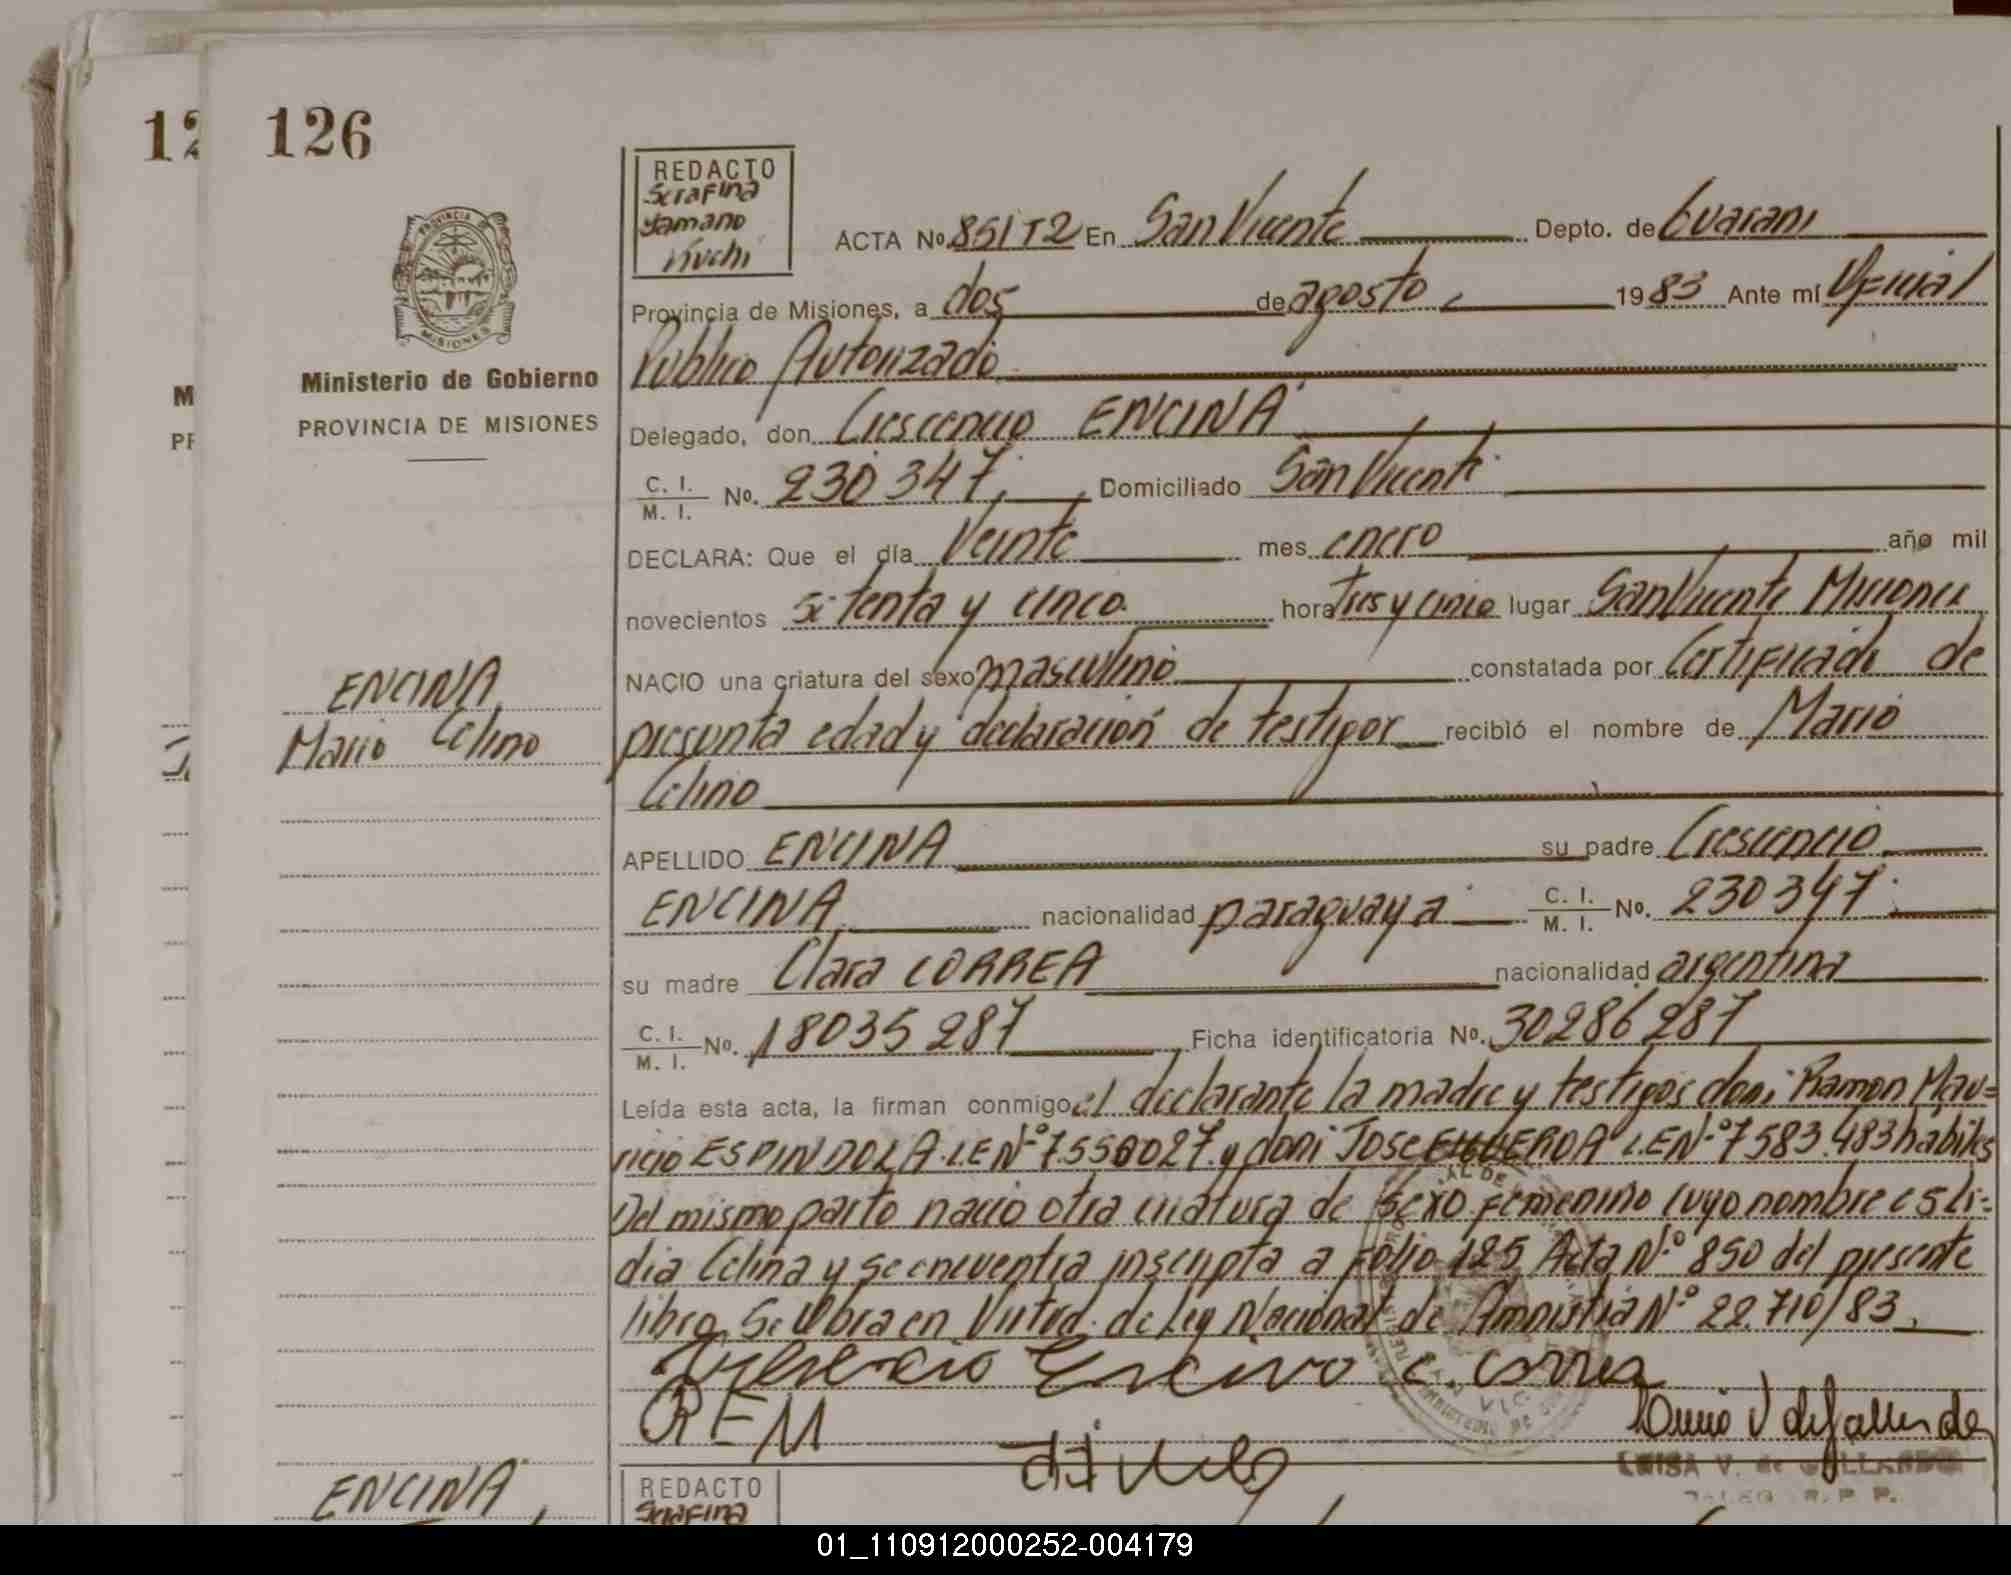 12
126
REDACTO
Serafina
Yamano
Kiuchi
ACTA No. 851 T2 En San Vicente Depto. de Guarani
PROVINCIA DE
MISIONES
Provincia de Misiones, a dos de agosto 1983 Ante mí Oficial
M
Ministerio de Gobierno
Publico Autorizado
PF
PROVINCIA DE MISIONES
Delegado, don Crescencio ENCINA
C. I.
M. I. No. 230347, Domiciliado San Vicente
DECLARA: Que el día Veinte mes enero año mil
novecientos setenta y cinco. hora Tres y cinco lugar San Vicente Misiones
NACIO una criatura del sexo masculino constatada por Certificado de
ENCINA
Mario Celino
presunta edad y declaración de testigos recibió el nombre de Mario
Celino
APELLIDO ENCINA su padre Crescencio
ENCINA nacionalidad paraguaya C. I.
M. I. No. 230347
su madre Clara CORREA nacionalidad argentina
C. I.
M. I. No. 18035287 Ficha identificatoria No. 30286287
Leída esta acta, la firman conmigo el declarante la madre y testigos don: Ramon Mau=
ricio ESPINDOLA L.E Nº 7.550027. y don: JOSE FIGUEROA L.E Nº 7583.483 habiles
Del mismo parto nacio otra criatura de sexo femenino cuyo nombre es Li=
dia Celina y se encuentra inscripta a folio 125 Acta Nº 850 del presente
libro. Se labra en Virtud. de Ley Nacional de Amnistia Nº 22.710/83.
Encino C. Correa
REM
LUISA V. de GALLARDO
DELEG. R. P. P.
ENCINA
REDACTO
Serafina
01_110912000252-004179